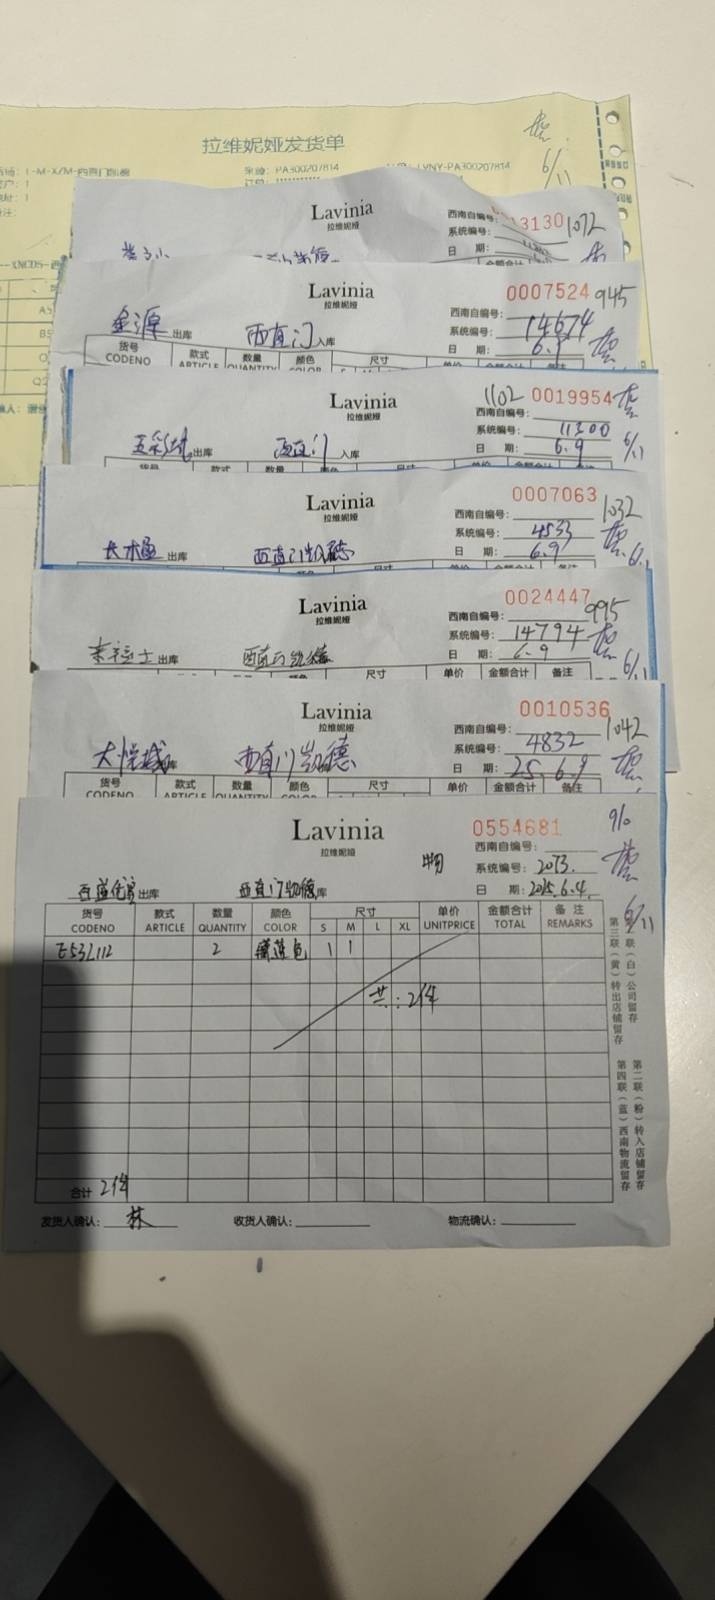 拉维妮娅发货单
PA300207814
LVNY-PA300207814
6/11
Lavinia
拉维妮娅
西南自编号:
13130 1072
系统编号:
日 期:
Lavinia
拉维妮娅
0007524 945
西南自编号:
系统编号: 14674
日 期: 6.9
金源 出库 西直门 入库
货号 款式 数量 颜色 尺寸 单价 金额合计 备注
CODENO ARTICLE QUANTITY COLOR
Lavinia
拉维妮娅
1102 0019954
西南自编号:
系统编号: 11300
日 期: 6.9
6/11
五彩城 出库 西直门 入库
货号 款式 数量 颜色 尺寸 单价 金额合计 备注
Lavinia
拉维妮娅
0007063 1032
西南自编号:
系统编号: 4533
日 期: 6.9
出库 西直门凯德
Lavinia
拉维妮娅
0024447 995
西南自编号:
系统编号: 14794
日 期: 6.9
6/11
出库 西直门凯德
尺寸 单价 金额合计 备注
Lavinia
拉维妮娅
0010536 1042
西南自编号:
系统编号: 4832
日 期: 25.6.9
大悦城 库 西直门凯德
货号 款式 数量 颜色 尺寸 单价 金额合计 备注
CODENO ARTICLE QUANTITY COLOR
Lavinia
拉维妮娅
0554681 910
西南自编号:
系统编号: 2073
日 期: 2025.6.4.
6/11
出库 西直门凯德 库
货号 款式 数量 颜色 尺寸 单价 金额合计 备注
CODENO ARTICLE QUANTITY COLOR S M L XL UNITPRICE TOTAL REMARKS
E53L112 2 藏蓝色 1 1
共:2件
第一联(白)公司留存
第三联(黄)转出店铺留存
第二联(粉)转入店铺留存
第四联(蓝)西南物流留存
合计 2件
发货人确认: 林 收货人确认: 物流确认: